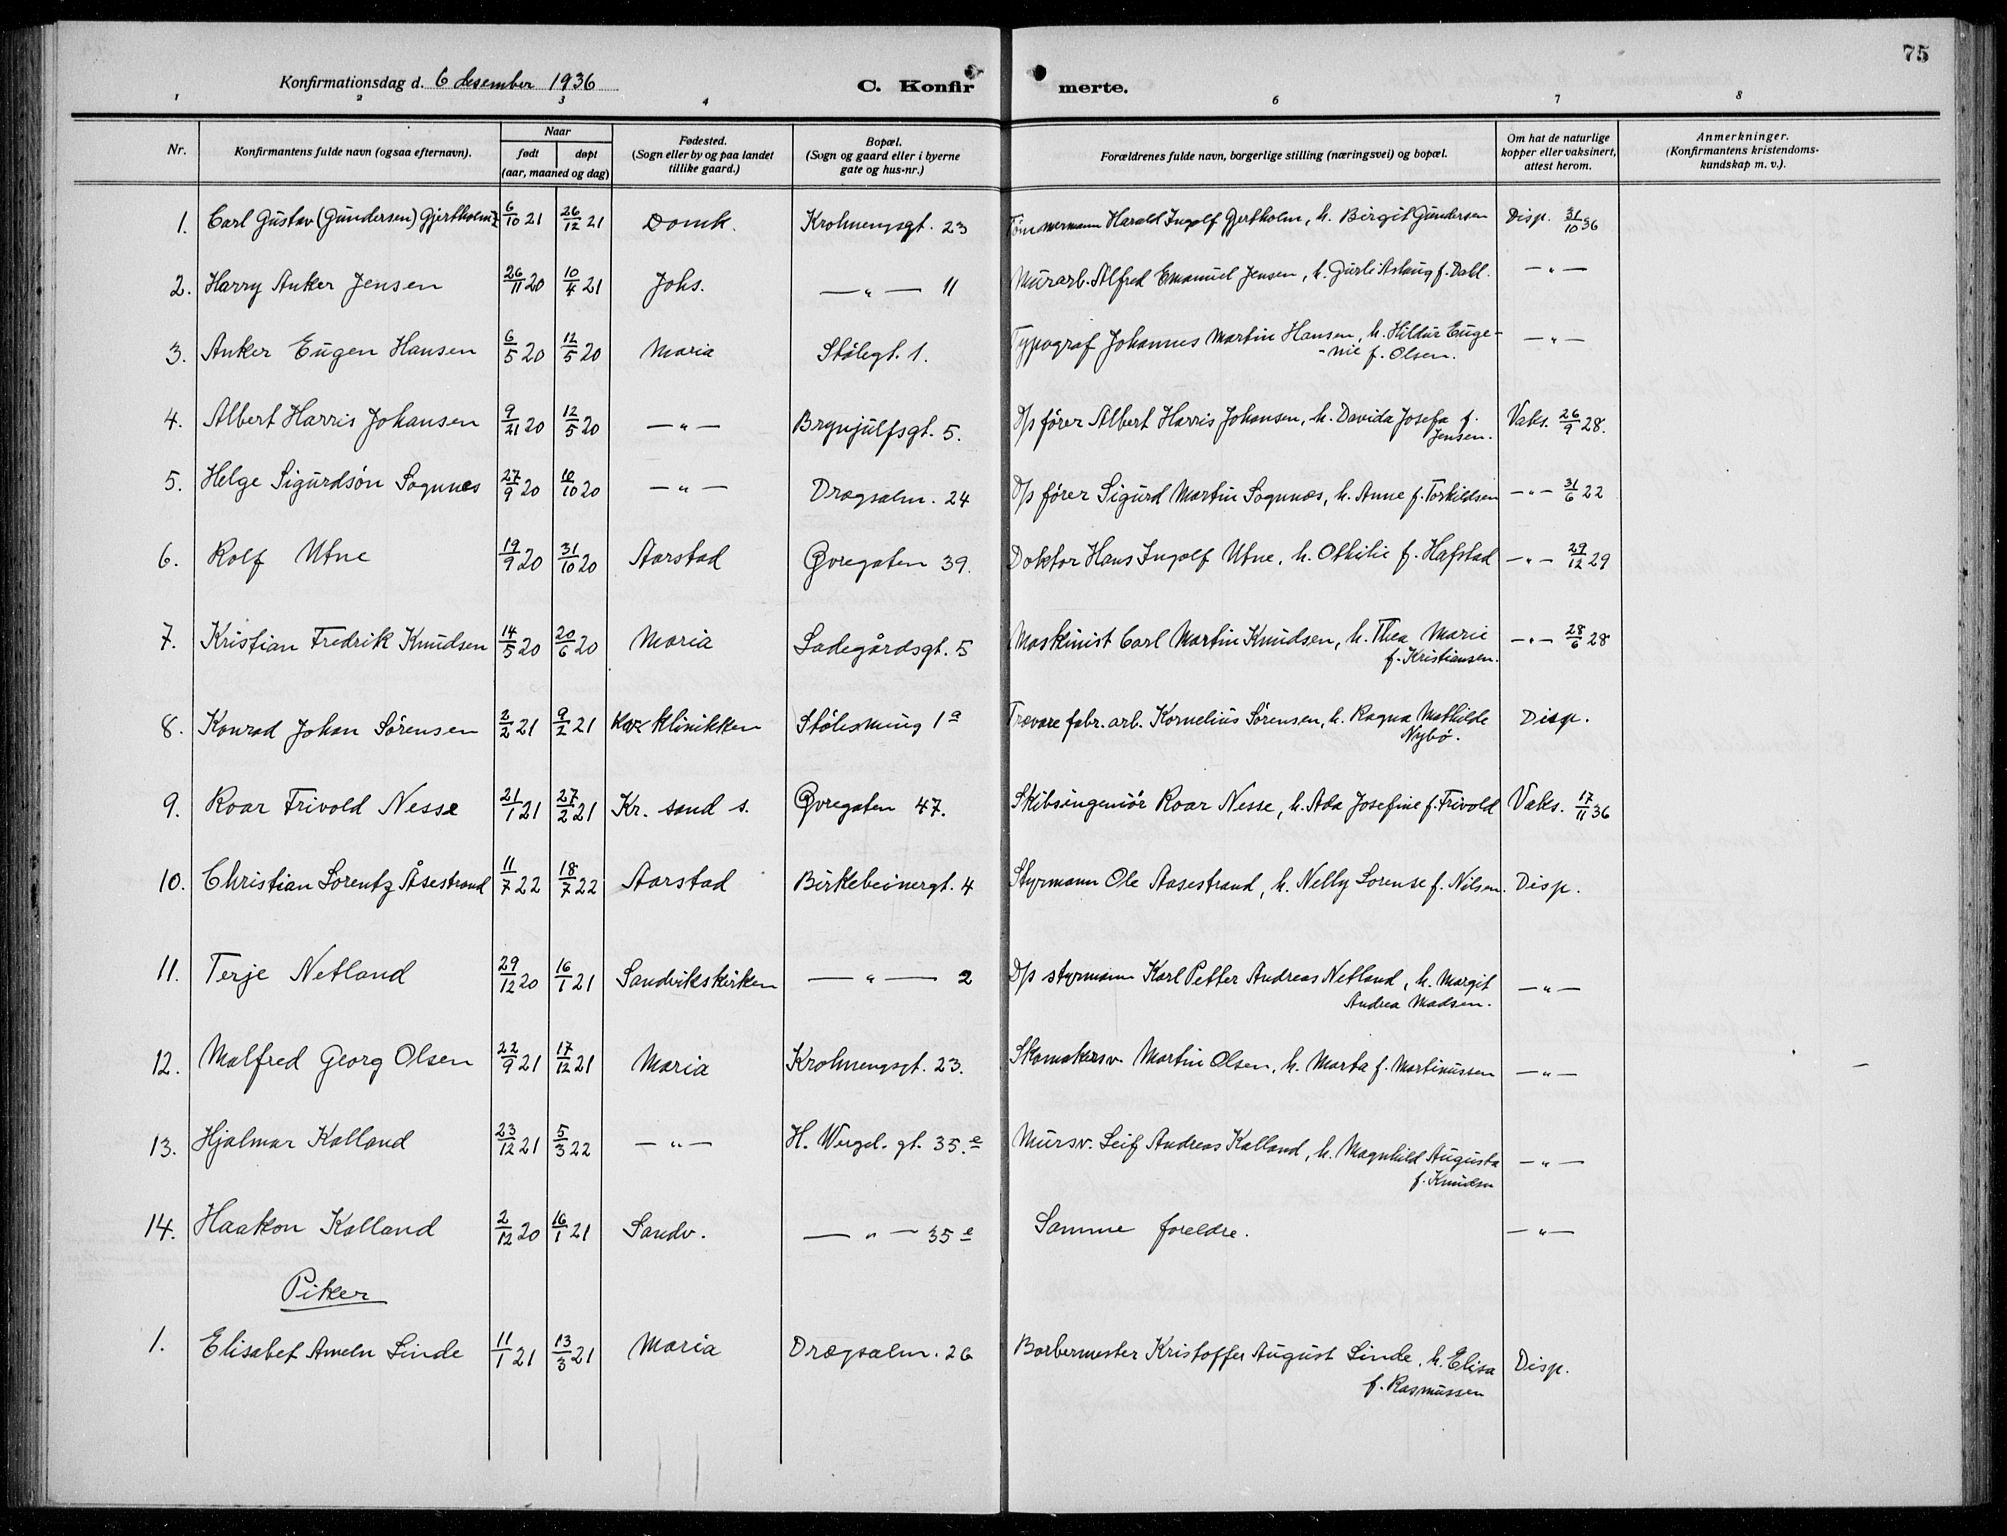 75
Konfirmationsdag d. 6 desember 1936
C. Konfirmerte.
1 2 3 4 6 7 8
Nr.
Konfirmantens fulde navn (ogsaa efternavn).
Naar
født døpt
(aar, maaned og dag)
Fødested.
(Sogn eller by og paa landet
tillike gaard.)
Bopæl.
(Sogn og gaard eller i byerne
gate og hus-nr.)
Forældrenes fulde navn, borgerlige stilling (næringsvei) og bopæl.
Om hat de naturlige
kopper eller vaksinert,
attest herom.
Anmerkninger.
(Konfirmantens kristendoms-
kundskap m. v.).
1. Carl Gustav (Gundersen) Gjertholm 6/10 21 26/12 21 Domk. Krohnengsgt. 23 Tømmermann Harald Ingolf Gjertholm, h. Birgit Gundersen Disp. 31/10 36
2. Harry Anker Jensen 26/11 20 10/4 21 Johs. — " — 11 Murarb. Alfred Emanuel Jensen, h. Gurli Aslaug f. Dahl. — " —
3. Anker Eugen Hansen 6/5 20 12/5 20 Maria Stølegt. 1. Typograf Johannes Martin Hansen, h. Hildur Euge-
-nie f. Olsen. — " —
4. Albert Harris Johansen 9/21 20 12/5 20 — " — Brynjulfsgt. 5. D/s fører Albert Harris Johansen, h. Davida Josefa f.
Jensen. Vaks. 26/9 28.
5. Helge Sigurdsøn Sognnes 27/9 20 10/10 20 — " — Drægsalm. 24 D/s fører Sigurd Martin Sognnes, h. Anne f. Torkildsen — " — 31/6 22
6. Rolf Utne 19/9 20 31/10 20 Aarstad Øvregaten 39. Doktor Hans Ingolf Utne, h. Othilie f. Hafstad — " — 29/12 29
7. Kristian Fredrik Knudsen 14/5 20 20/6 20 Maria Ladegårdsgt. 5 Maskinist Carl Martin Knudsen, h. Thea Marie
f. Kristiansen. — " — 28/6 28
8. Konrad Johan Sørensen 2/2 21 9/2 21 Klinikken Stølesmug 1a Trævare fabr. arb. Kornelius Sørensen, h. Ragna Mathilde
Nybø. Disp.
9. Roar Frivold Nesse 21/1 21 27/2 21 Kr. sand s. Øvregaten 47. Skibsingeniør Roar Nesse, h. Ada Josefine f. Frivold Vaks. 17/11 36
10. Christian Lorentz Åsestrand 11/7 22 18/7 22 Aarstad Birkebeinergt. 4 Styrmann Ole Aasestrand, h. Nelly Lorense f. Nilsen. Disp.
11. Terje Netland 29/12 20 16/1 21 Sandvikskirken — " — 2 D/s styrmann Karl Petter Andreas Netland, h. Margit
Andrea Madsen. — " —
12. Malfred Georg Olsen 22/9 21 17/12 21 Maria Krohnengsgt. 23. Skomakersv. Martin Olsen, h. Marta f. Martinussen — " —
13. Hjalmar Kalland 23/12 21 5/3 22 — " — H. Wergel. gt. 35.e Mursv. Leif Andreas Kalland, h. Magnhild Augusta
f. Knudsen — " —
14. Haakon Kalland 2/12 20 16/1 21 Sandv. — " — 35e Samme foreldre. — " —
Piker
1. Elisabet Ameln Linde 11/1 21 13/3 21 Maria Drægsalm. 26 Barbermester Kristoffer August Linde, h. Elisa
f. Rasmussen Disp.